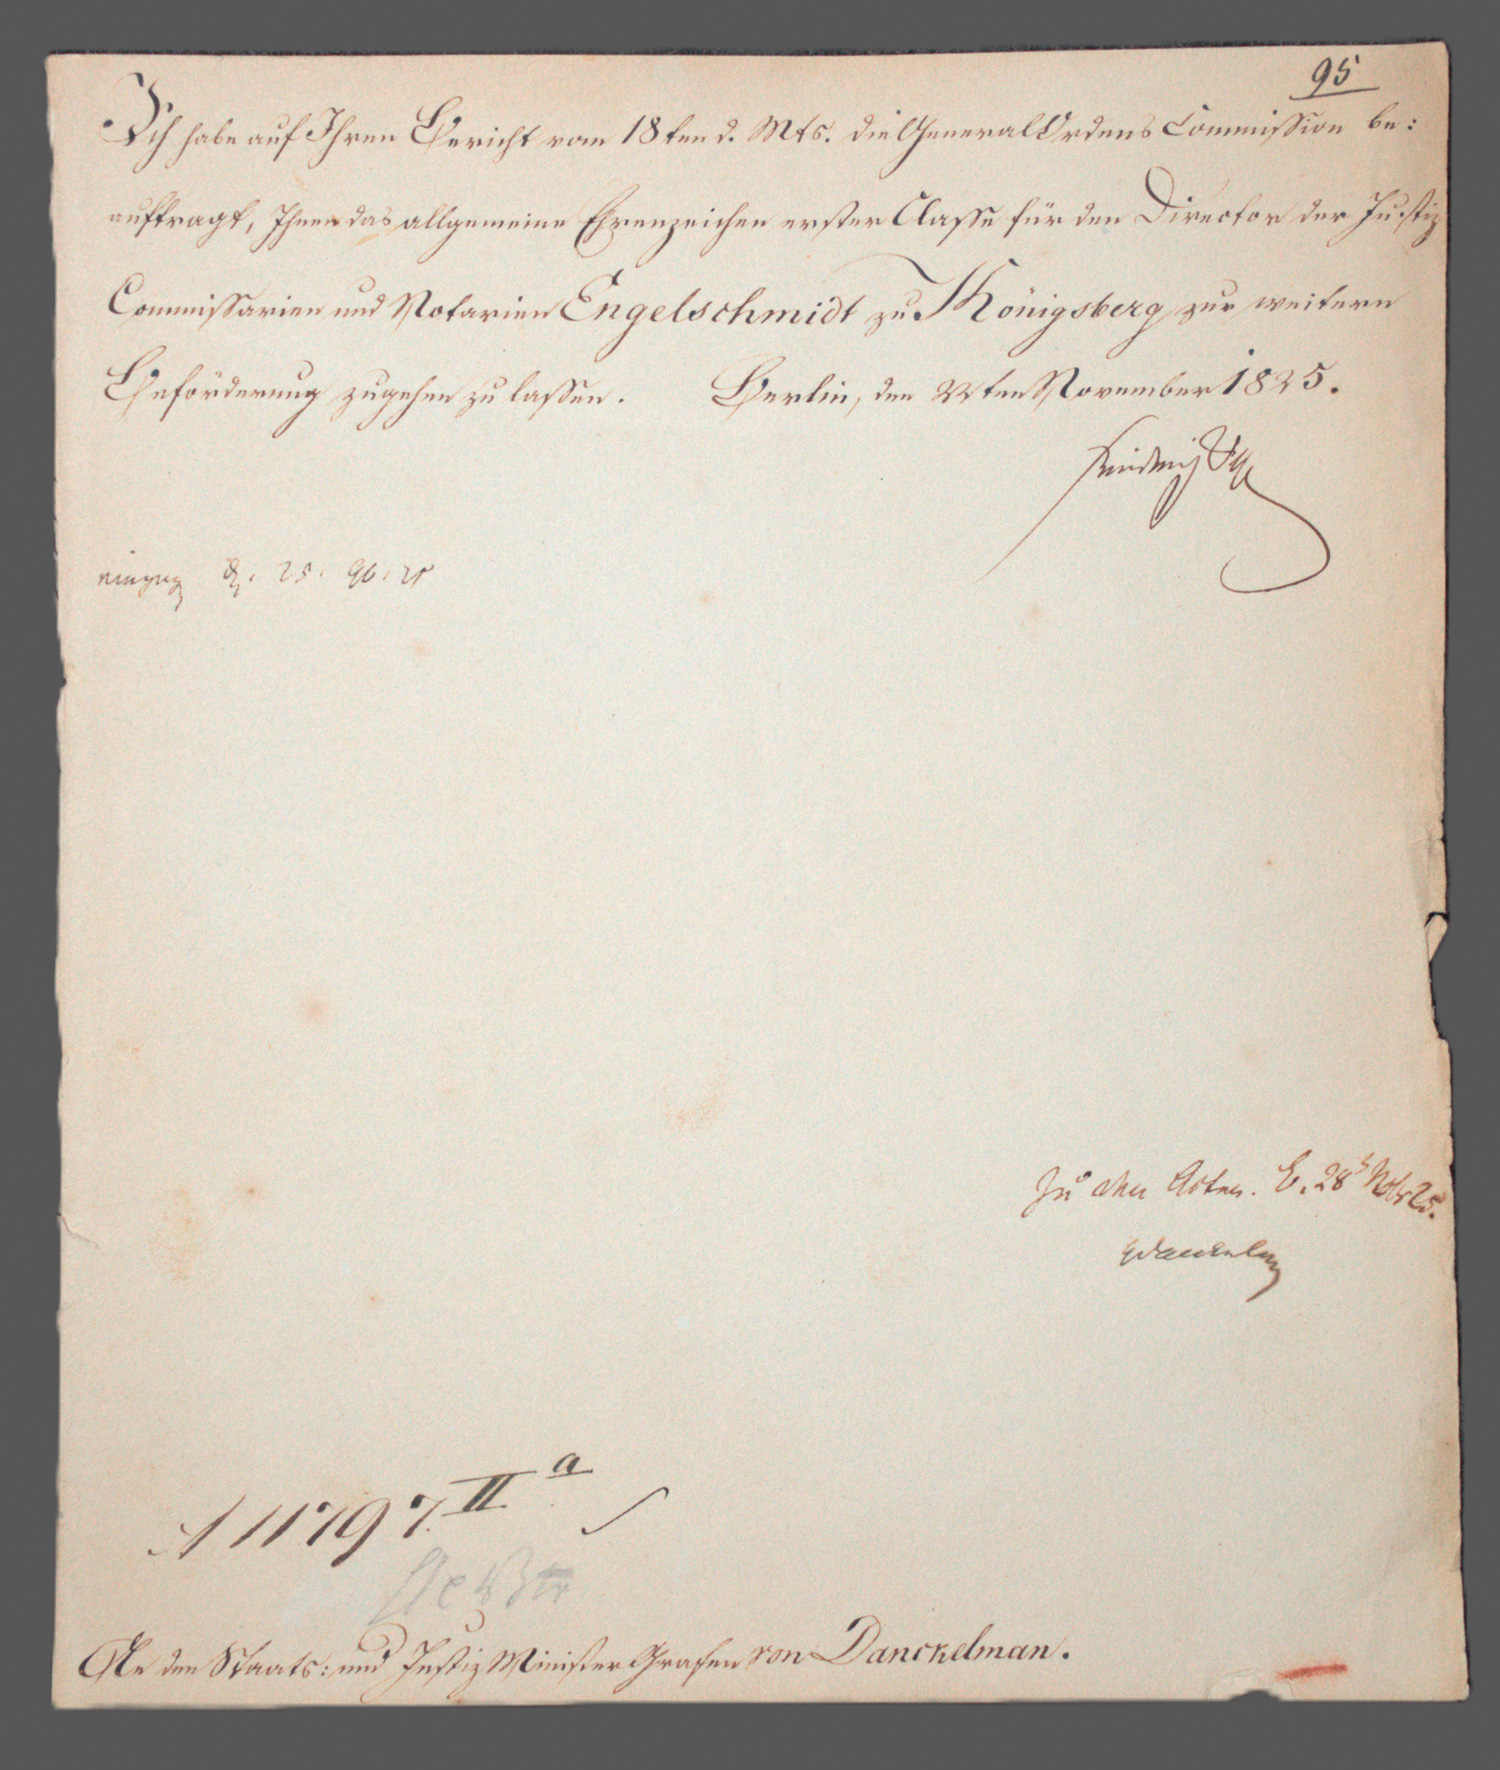 95
Ich habe auf Ihren Bericht vom 18ten d. Mts. die General Ordens Commission be:
auftragt, Ihnen das allgemeine Ehrenzeichen erster Classe für den Director der Justiz
Commissarien und Notarien Engelschmidt zu Königsberg zur weitern
Beförderung zugehen zu lassen. Berlin, den 22ten November 1825.
Friedrich Wilh
eingeg d. 25. 9b. 25
Zu den Acten. B. 28 Nobr 25.
Danckelman
A 11797. II a
An den Staats: und Justiz Minister Grafen von Danckelman.